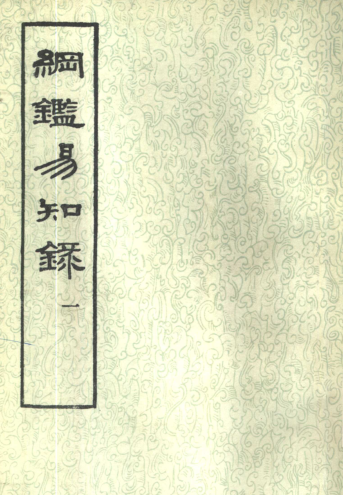 綱鑑易知錄 一